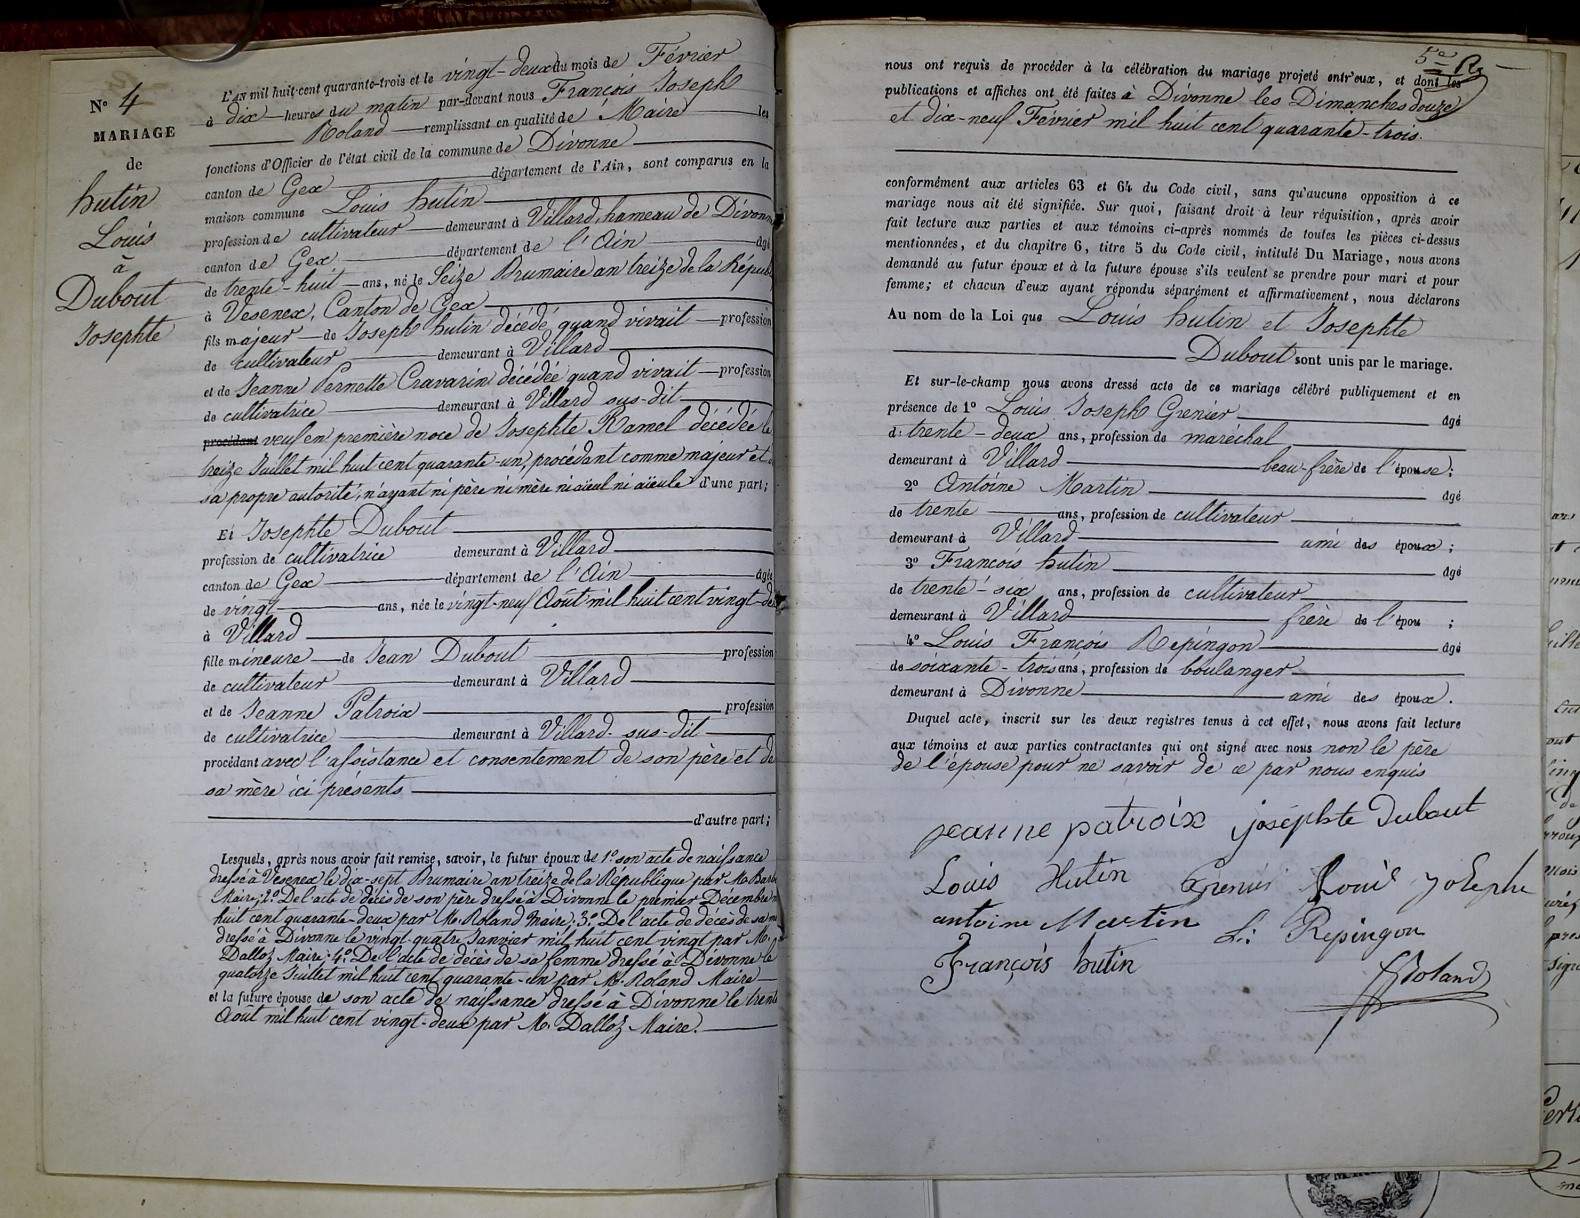 N° 4
MARIAGE
de
hutin
Louis
à
Dubout
Josephte
L'AN mil huit-cent quarante-trois et le vingt-deux du mois de Février
à dix heures du matin par-devant nous François Joseph
Roland remplissant en qualité de Maire les
fonctions d'Officier de l'état civil de la commune de Divonne
canton de Gex département de l'Ain, sont comparus en la
maison commune Louis hutin
profession de cultivateur demeurant à Villard, hameau de Divonne
canton de Gex département de l'Ain agé
de trente-huit ans, né le Seize Brumaire an treize de la Républ
à Vesenex, Canton de Gex
fils majeur de Joseph hutin décédé quand vivait profession
de cultivateur demeurant à Villard
et de Jeanne Pernette Cravarin décédée quand vivait profession
de cultivatrice demeurant à Villard sus-dit
procédant veuf en première noce de Josephte Ramel décédée le
treize Juillet mil huit cent quarante-un, procédant comme majeur et
sa propre autorité, n'ayant ni père ni mère ni aïeul ni aïeule d'une part;
Et Josephte Dubout
profession de cultivatrice demeurant à Villard
canton de Gex département de l'Ain agée
de vingt ans, née le vingt-neuf Août mil huit cent vingt-de
à Villard
fille mineure de Jean Dubout profession
de cultivateur demeurant à Villard
et de Jeanne Patroix profession
de cultivatrice demeurant à Villard sus-dit
procédant avec l'assistance et consentement de son père et de
sa mère ici présents
d'autre part;
Lesquels, après nous avoir fait remise, savoir, le futur époux de 1° son acte de naissance
dressé à Vesenex le dix-sept Brumaire an treize de la République par Mr
Maire; 2° De l'acte de décès de son père dressé à Divonne le premier Décembre
huit cent quarante-deux par Mr Roland Maire; 3° De l'acte de décès de sa
dressé à Divonne le vingt-quatre Janvier mil huit cent vingt par Mr
Dalloz Maire; 4° De l'acte de décès de sa femme dressé à Divonne le
quatorze Juillet mil huit cent quarante-un par Mr Roland Maire
et la future épouse de son acte de naissance dressé à Divonne le trente
Aout mil huit cent vingt-deux par Mr Dalloz Maire.
5e
nous ont requis de procéder à la célébration du mariage projeté entr'eux, et dont les
publications et affiches ont été faites à Divonne les Dimanches douze
et dix-neuf Février mil huit cent quarante-trois.
conformément aux articles 63 et 64 du Code civil, sans qu'aucune opposition à ce
mariage nous ait été signifiée. Sur quoi, faisant droit à leur réquisition, après avoir
fait lecture aux parties et aux témoins ci-après nommés de toutes les pièces ci-dessus
mentionnées, et du chapitre 6, titre 5 du Code civil, intitulé Du Mariage, nous avons
demandé au futur époux et à la future épouse s'ils veulent se prendre pour mari et pour
femme; et chacun d'eux ayant répondu séparément et affirmativement, nous déclarons
Au nom de la Loi que Louis hutin et Josephte
Dubout sont unis par le mariage.
Et sur-le-champ nous avons dressé acte de ce mariage célébré publiquement et en
présence de 1° Louis Joseph Grenier agé
de trente-deux ans, profession de maréchal
demeurant à Villard beau-frère de l'épouse;
2° Antoine Martin agé
de trente ans, profession de cultivateur
demeurant à Villard ami des époux;
3° François hutin agé
de trente-six ans, profession de cultivateur
demeurant à Villard frère de l'épou ;
4° Louis François Repingon agé
de soixante-trois ans, profession de boulanger
demeurant à Divonne ami des époux.
Duquel acte, inscrit sur les deux registres tenus à cet effet, nous avons fait lecture
aux témoins et aux parties contractantes qui ont signé avec nous non le père
de l'épouse pour ne savoir de ce par nous enquis
jeanne patroix joséphte Dubout
Louis Hutin Grenier Louis Joseph
antoine Martin L. Repingon
François hutin Roland